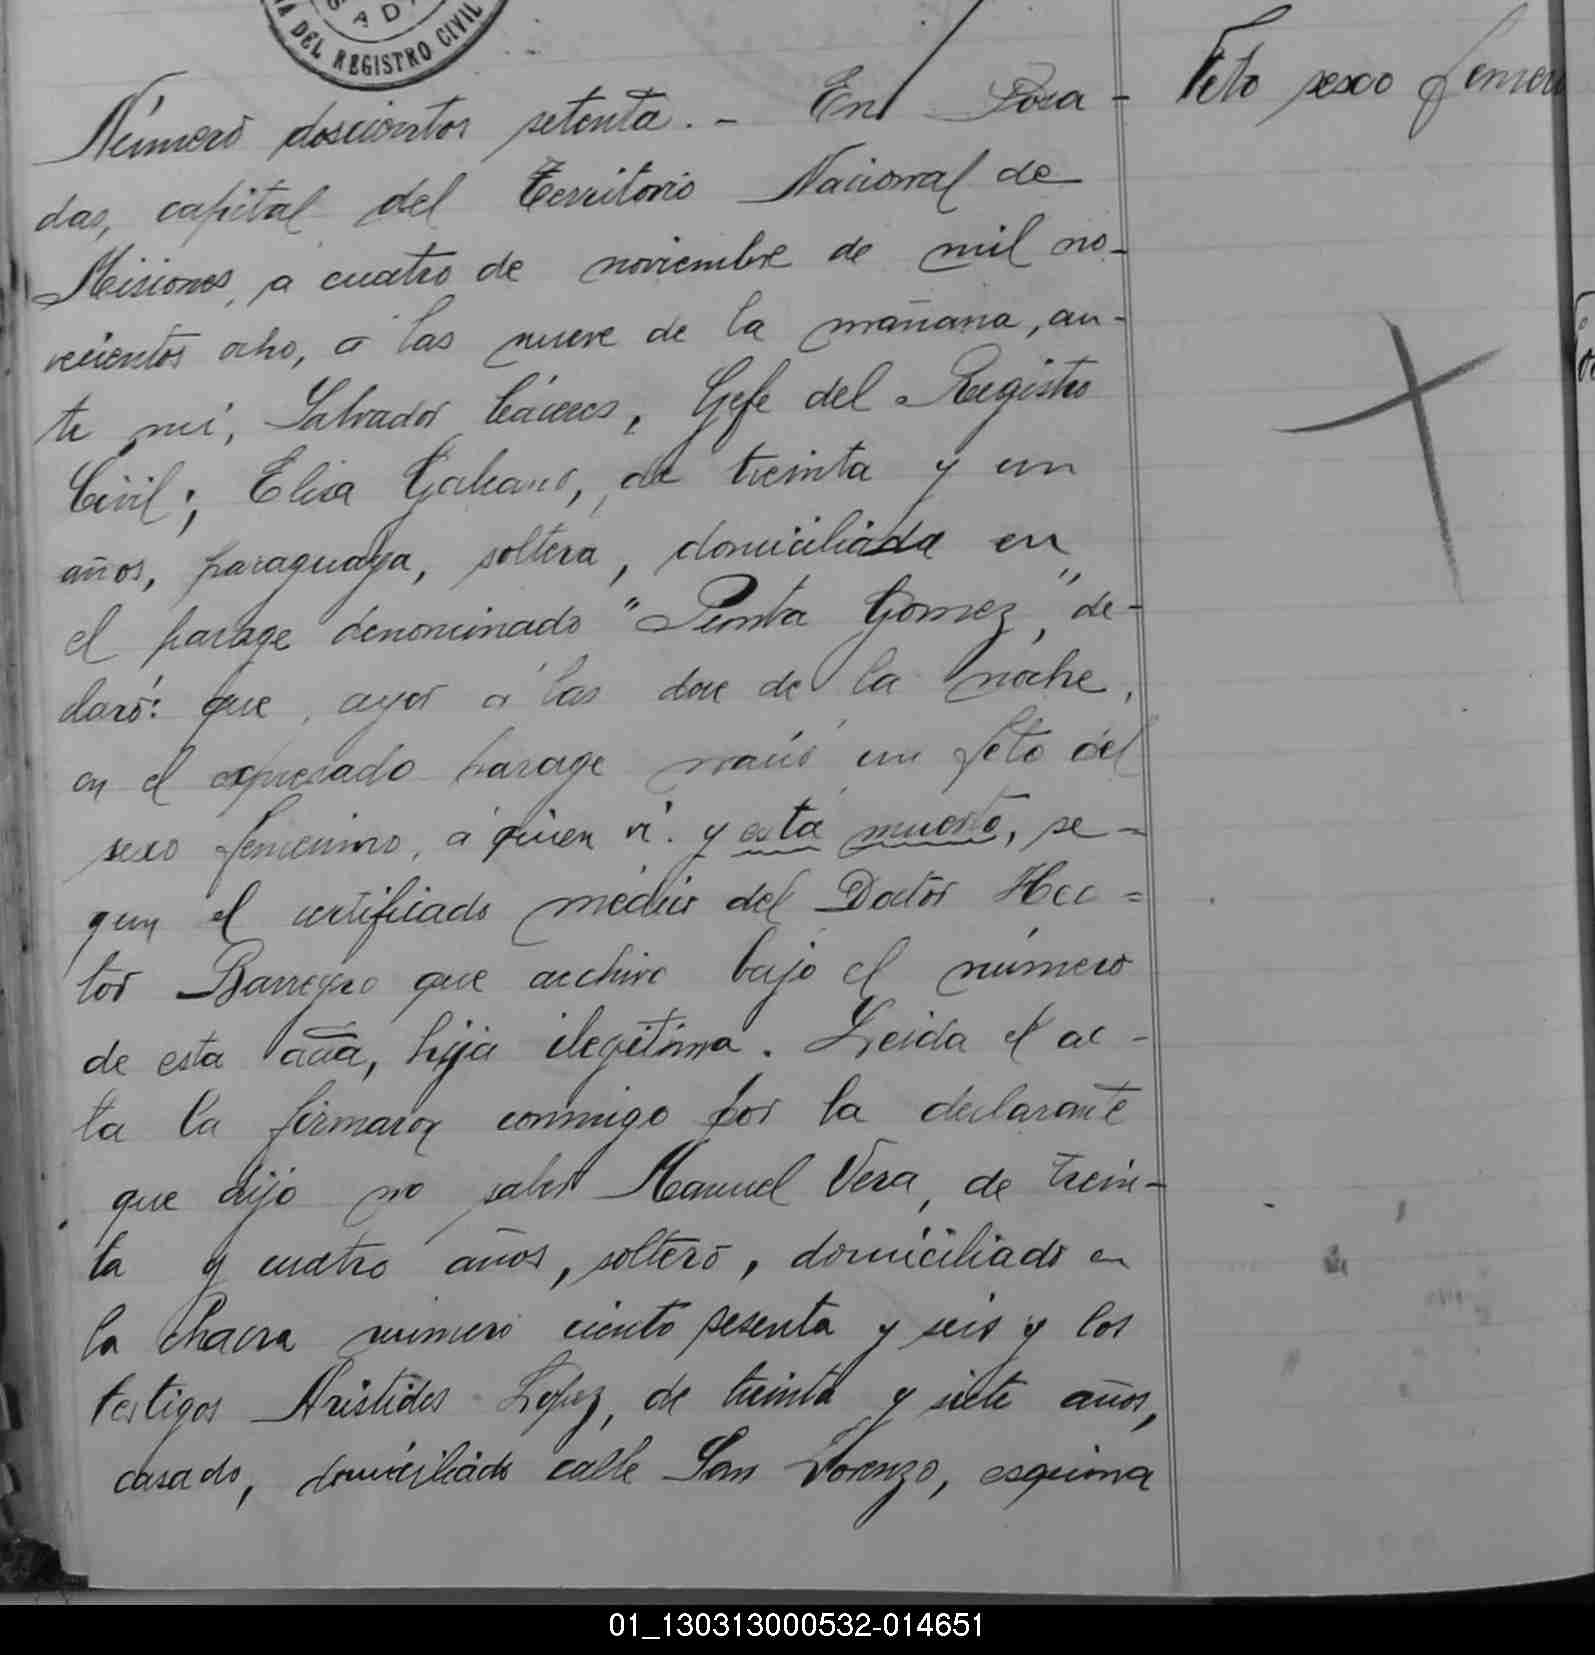 DEL REGISTRO CIVIL
Feto sexo femen
Número doscientos setenta. - En Posa-
das, capital del Territorio Nacional de
Misiones, a cuatro de noviembre de mil no-
vecientos ocho, á las nueve de la mañana, an-
te mí, Salvador Cáceres, Gefe del Registro
Civil; Elisa Galeano, de treinta y un
años, paraguaya, soltera, domiciliada en
el parage denominado "Punta Gomez", de-
claró: que ayer á las doce de la noche,
en el expresado parage nació un feto del
sexo femenino, á quien ví y está muerto, se-
gun el certificado médico del Doctor Hec=
tor Barreyro que archivo bajo el número
de esta acta, hija ilegítima. Leida el ac-
ta la firmaron conmigo por la declarante
que dijo no saber Manuel Vera, de trein-
ta y cuatro años, soltero, domiciliado en
la chacra número ciento sesenta y seis y los
testigos Aristides Lopez, de treinta y siete años,
casado, domiciliado calle San Lorenzo, esquina
01_130313000532-014651